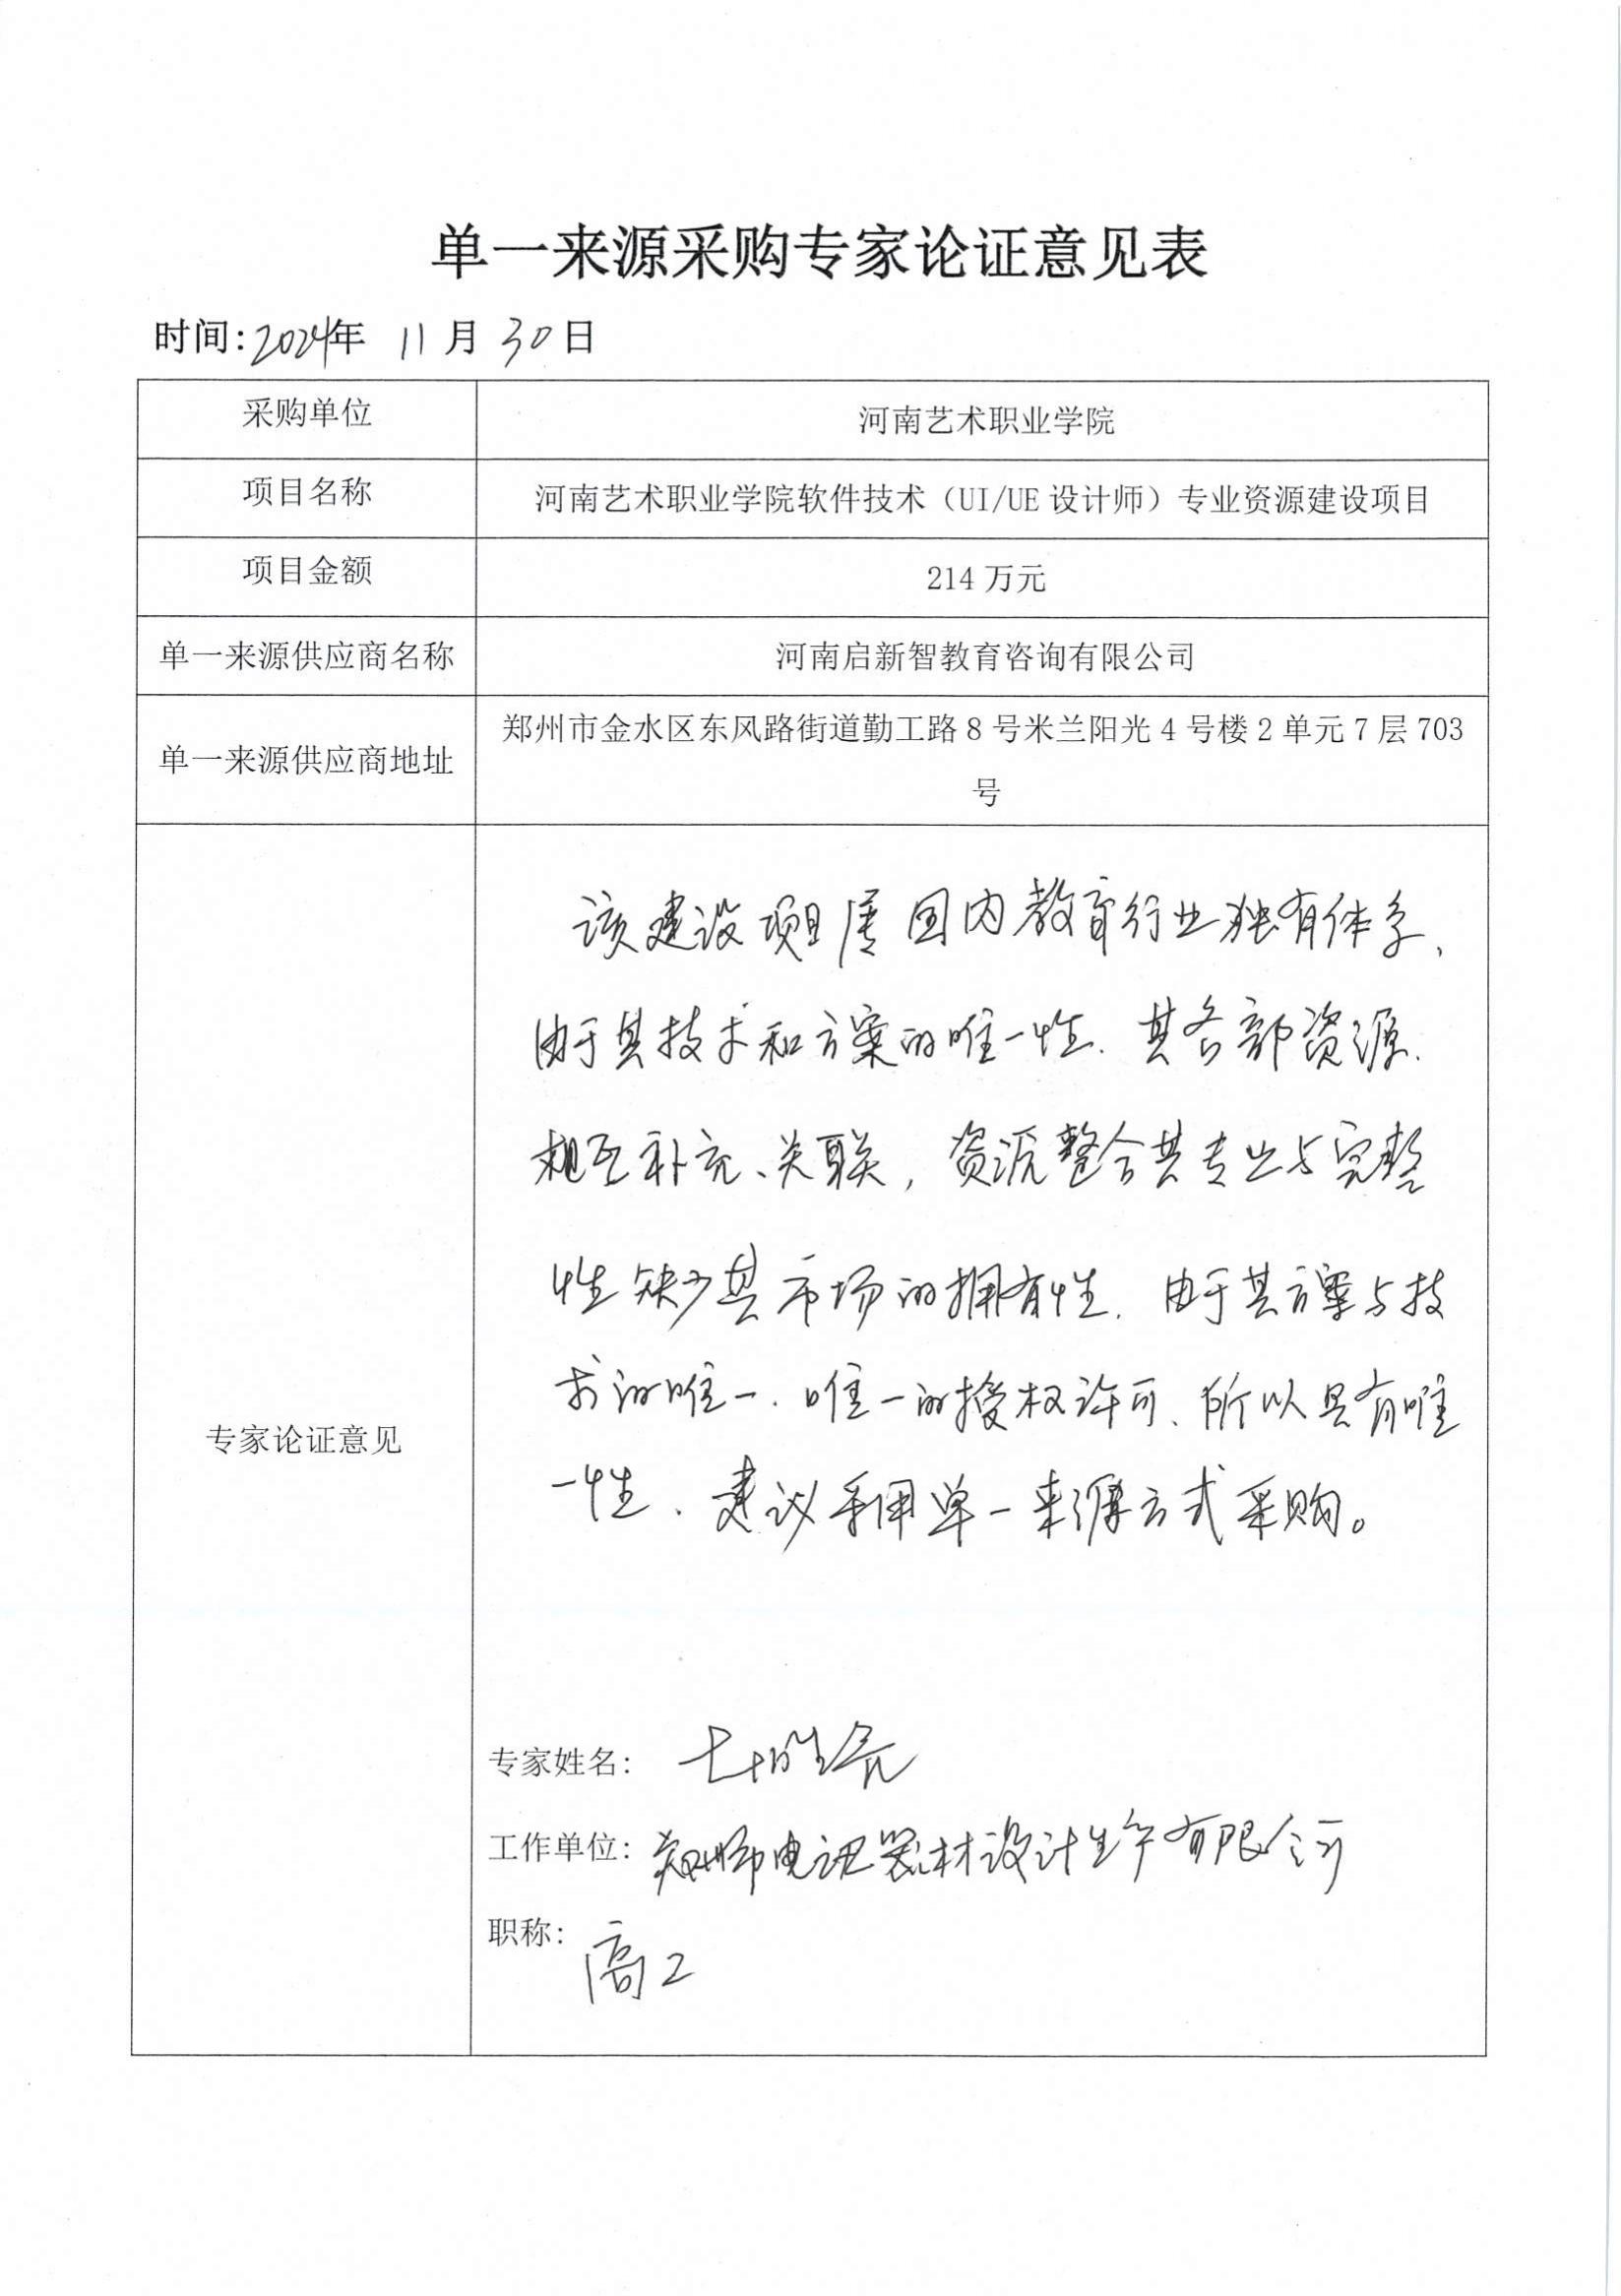 单一来源采购专家论证意见表
时间:2024年 11月30日
采购单位
河南艺术职业学院
项目名称
河南艺术职业学院软件技术（UI/UE 设计师）专业资源建设项目
项目金额
214 万元
单一来源供应商名称
河南启新智教育咨询有限公司
单一来源供应商地址
郑州市金水区东风路街道勤工路 8 号米兰阳光 4 号楼 2 单元 7 层 703
号
专家论证意见
该建设项目属国内教育行业独有体系、
由于其技术和方案的唯一性、其各部资源、
相互补充、关联，资源整合其专业与完整
性缺少其市场的拥有性、由于其方案与技
术的唯一、唯一的授权许可、所以具有唯
一性、建议采用单一来源方式采购。
专家姓名:
工作单位: 电讯器材设计生产有限公司
职称: 高工